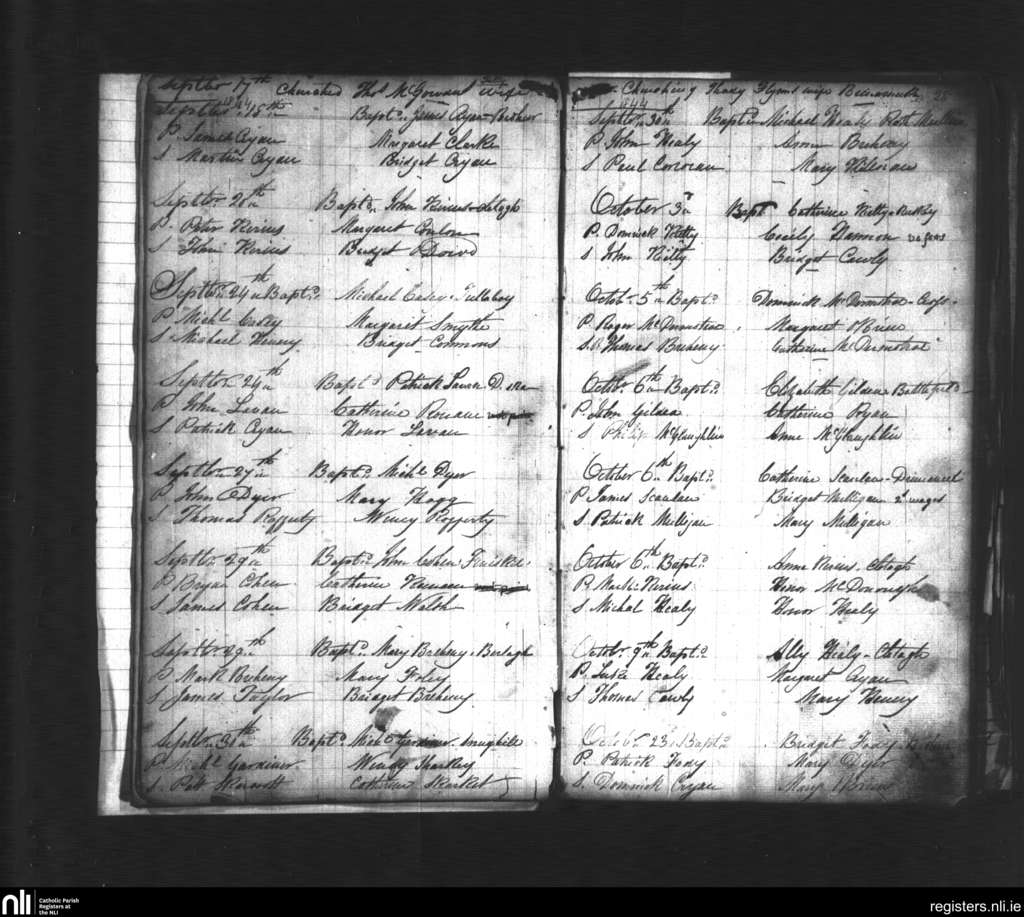 Septbr 17th Churched Thos McGowans wife
1844
Septbr 15th Baptd James Cryan
P James Cryan Margaret Clarke
S Martin Cryan Bridget Cryan
Septbr 26th Baptd John Kerins Clotgh
P. Peter Kerins Margaret Conlon
S John Kerins Bridget ODowd
Septbr 24th Baptd Michael Casey Tullaboy
P Michl Casey Margaret Smythe
S Michael Henery Bridget Commons
Septbr 24th Baptd Patrick
P John Lavan Catherine Ronane
S Patrick Cryan Honor Lavan
Septbr 27th Baptd Michl Dyer
P John Dyer Mary Flagg
S Thomas Rafferty Wency Rafferty
Septbr 29th Baptd John Cohen
P Bryan Cohen Catherine
S James Cohen Bridget Walsh
Septbr 29th Baptd Mary Breheny
P Mark Breheny Mary Foley
S James Taylor Bridget Breheny
Septbr 30th Baptd Michl Gardiner
P Michl Gardiner Wendy Sharkey
S. Patt Catherine
Churching Thady Flynns wife
25
1844
Septbr 30th Baptd Michael Healy
P John Healy Anne Breheny
S Paul Corcoran Mary
October 3rd Bapt Catherine Kielty
P. Dominick Kielty Cecily Hannon
S John Kielty Bridget Cawly
Octobr 5th Baptd Dominick McDermotroe
P Roger McDermotroe Margaret OBrien
S. Thomas Breheny Catherine McDermotroe
Octobr 6th Baptd Elizabeth Gildea Battlefield
P. John Gildea Catherine Cryan
S Philip McGlaughlin Anne McGlaughlin
October 6th Baptd Catherine Scanlan
P James Scanlan Bridget Mulligan
S. Patrick Mulligan Mary Mulligan
October 6th Baptd Anne Kerins Clotgh
P Mark Kerins Honor McDonough
S Michal Healy Honor Healy
Octobr 9th Baptd Ally Healy Clotagh
P Luke Healy Margaret Cryan
S Thomas Cawly Mary Henery
Octobr 23rd Baptd Bridget Fody
P. Patrick Fody Mary Dyer
S. Dominick Cryan Mary OBrien
nli Catholic Parish
Registers at
the NLI
registers.nli.ie